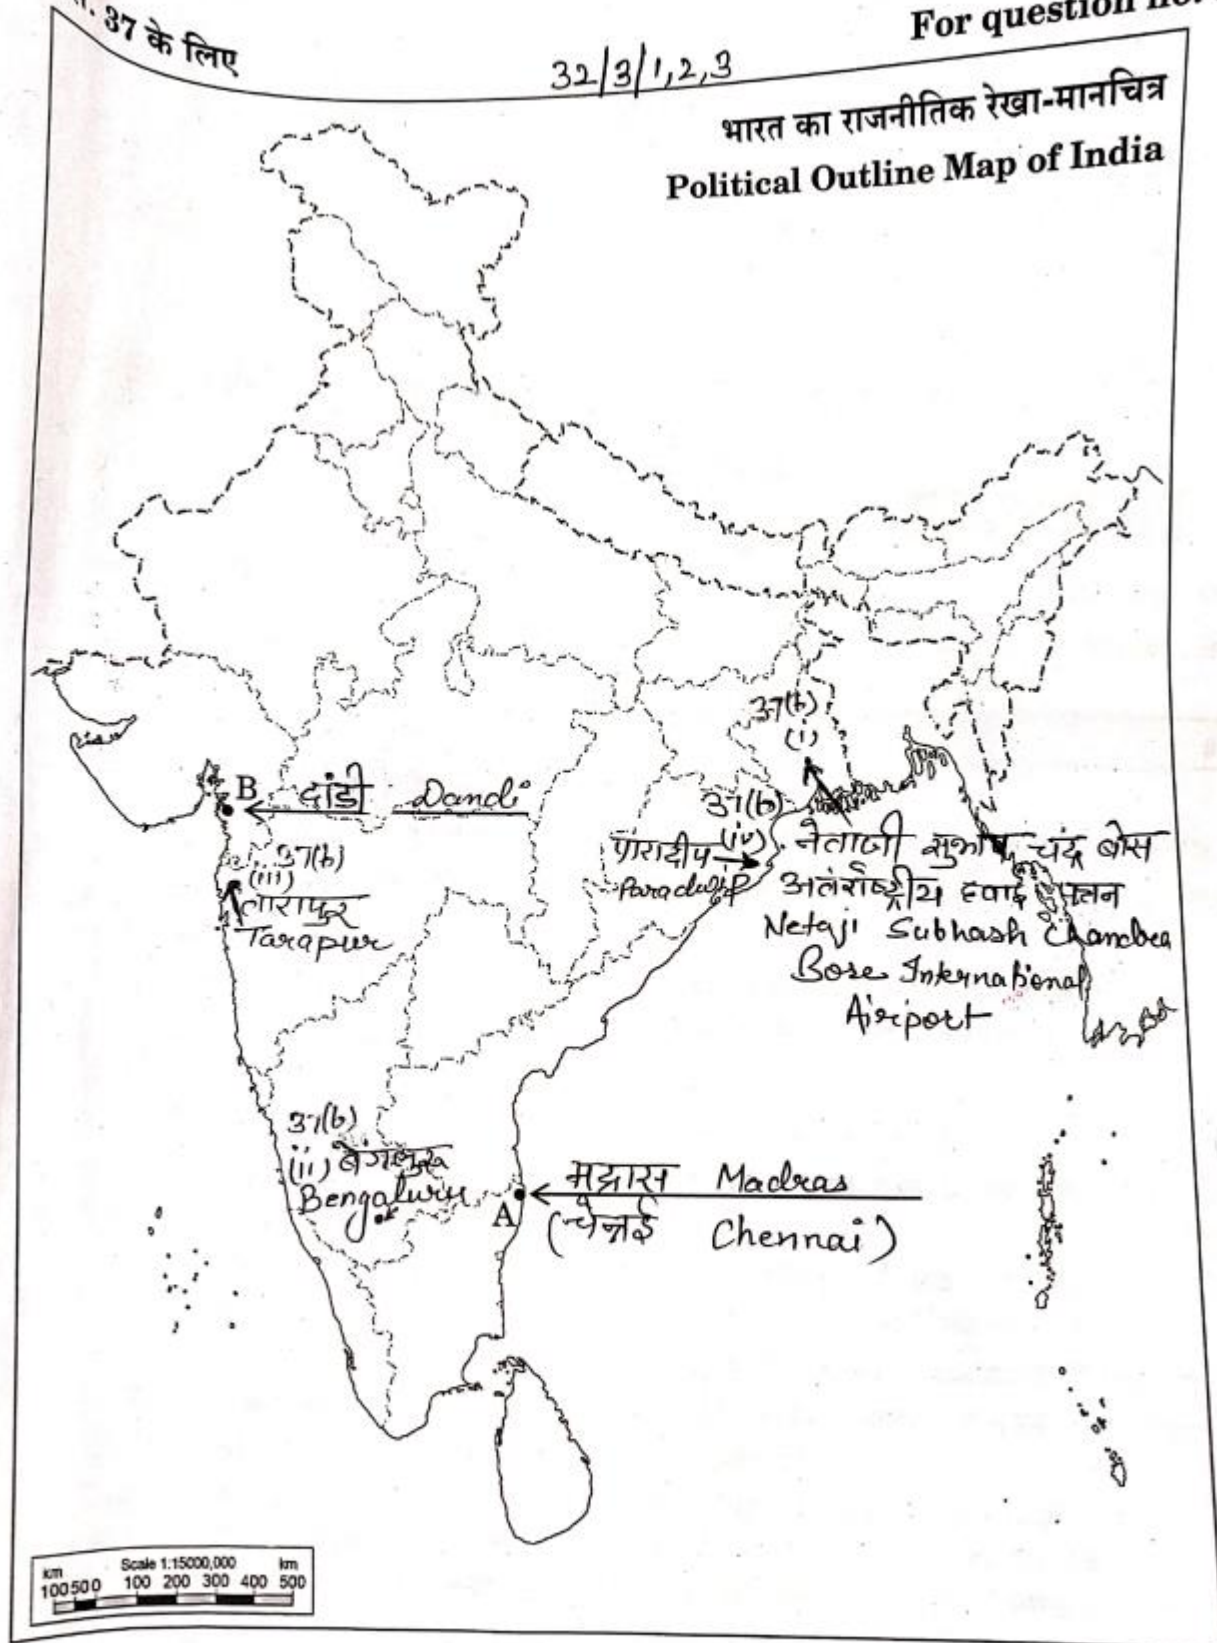 37 के लिए
For question no.
32/3/1,2,3
भारत का राजनीतिक रेखा-मानचित्र
Political Outline Map of India
37(b)
(i)
B
दांडी Dandi
37(b)
(iv)
पारादीप
Paradwip
नेताजी सुभाष चंद्र बोस
अतंर्राष्ट्रीय हवाई पत्तन
Netaji Subhash Chandra
Bose International
Airport
37(b)
(iii)
तारापुर
Tarapur
37(b)
(ii) बेंगलुरू
Bengaluru
A
मद्रास Madras
(चेन्नई Chennai)
km Scale 1:15000,000 km
100 50 0 100 200 300 400 500